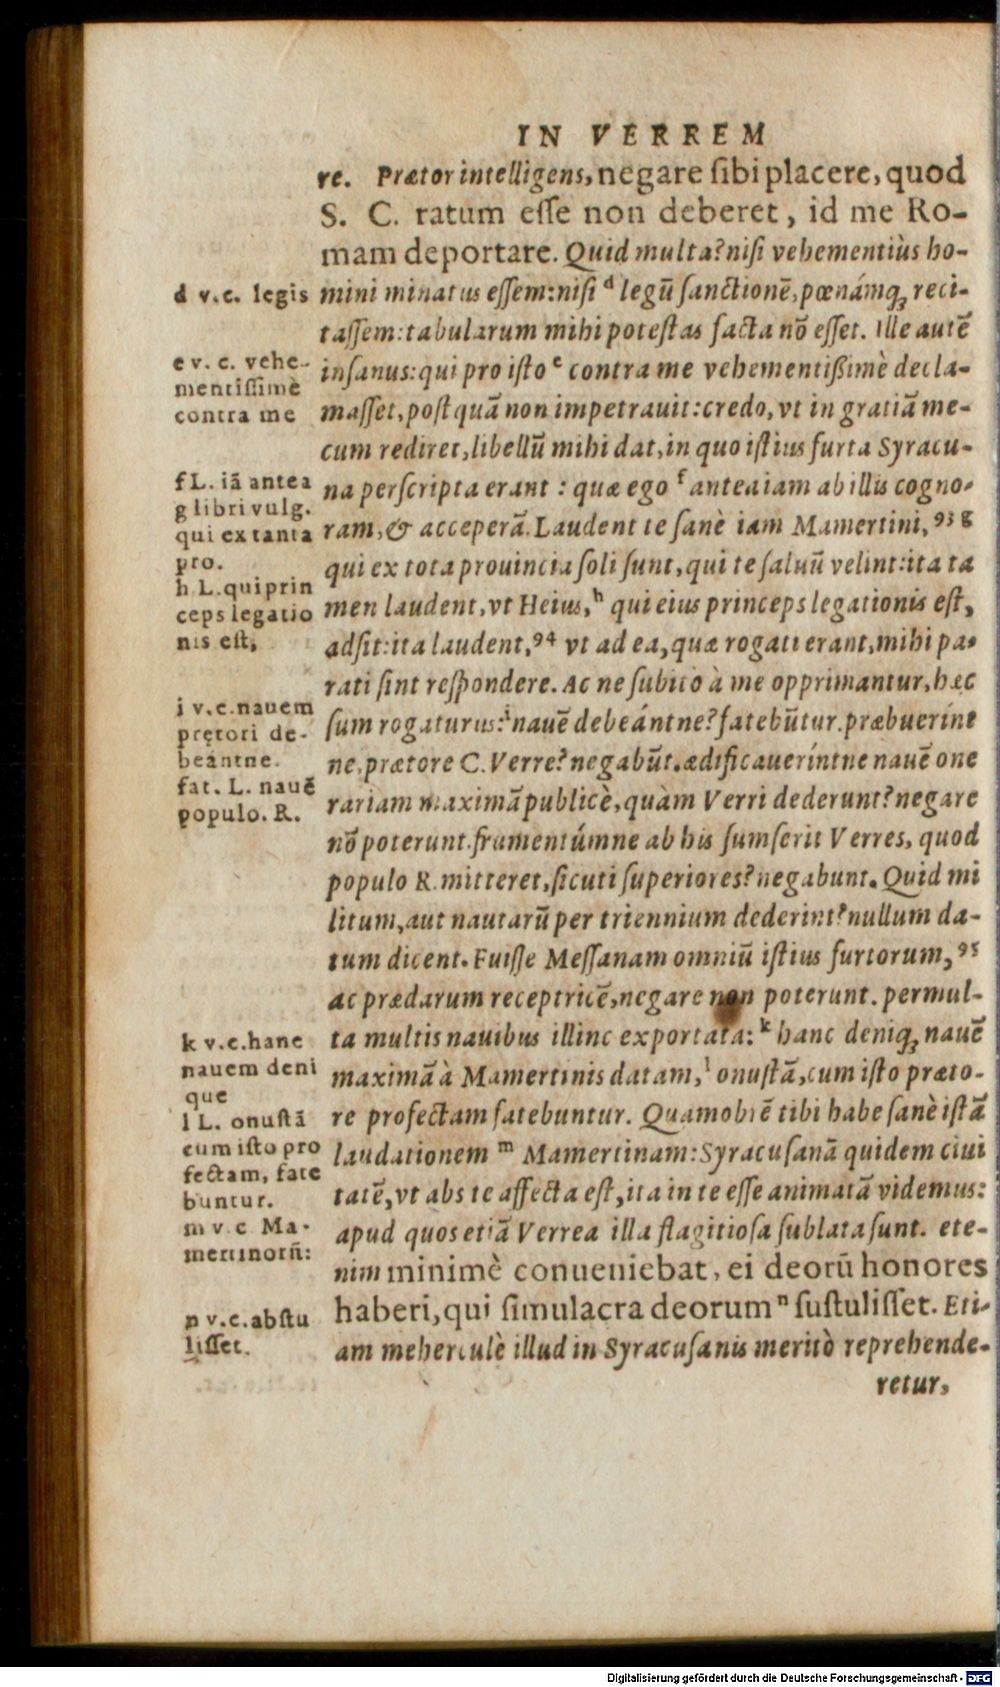 IN VERREM
re. Prætor intelligens, negare sibi placere, quod
S. C. ratum esse non deberet, id me Ro-
mam deportare. Quid multa? nisi vehementiùs ho-
mini minatus essem: nisi ᵈ legū sanctionē, pœnámq́ꝫ reci-
tassem: tabularum mihi potestas facta nō esset. Ille autē
insanus: qui pro isto ᵉ contra me vehementißimè decla-
masset, postquā non impetrauit: credo, vt in gratiā me-
cum rediret, libellū mihi dat, in quo istius furta Syracu-
na perscripta erant : quæ ego ᶠ antea iam ab illis cogno-
ram, & acceperā. Laudent te sanè iam Mamertini, ⁹³ ᵍ
qui ex tota prouincia soli sunt, qui te saluū velint: ita ta
men laudent, vt Heius, ʰ qui eius princeps legationis est,
adsit: ita laudent, ⁹⁴ vt ad ea, quæ rogati erant, mihi pa-
rati sint respondere. Ac ne subito à me opprimantur, hæc
sum rogaturus: ⁱ nauē debeántne? fatebūtur. præbueríntne
ne, prætore C. Verre? negabūt. ædificaueríntne nauē one
rariam maximā publicè, quàm Verri dederunt? negare
nō poterunt. frumentúmne ab his sumserit Verres, quod
populo R. mitteret, sicuti superiores? negabunt. Quid mi
litum, aut nautarū per triennium dederint? nullum da-
tum dicent. Fuisse Messanam omniū istius furtorum, ⁹⁵
ac prædarum receptricē, negare non poterunt. permul-
ta multis nauibus illinc exportata: ᵏ hanc deniqꝫ nauē
maximā à Mamertinis datam, ˡ onustā, cum isto præto-
re profectam fatebuntur. Quamobrē tibi habe sanè istā
laudationem ᵐ Mamertinam: Syracusanā quidem ciui
tatē, vt abs te affecta est, ita in te esse animatā videmus:
apud quos etiā Verrea illa flagitiosa sublata sunt. ete-
nim minimè conueniebat, ei deorū honores
haberi, qui simulacra deorum ⁿ sustulisset. Eti-
am meherculè illud in Syracusanis meritò reprehende-
retur,
d v.c. legis
e v. c. vehe-
mentissimè
contra me
f L. iā antea
g libri vulg.
qui ex tanta
pro.
h L. qui prin
ceps legatio
nis est,
i v.c. nauem
prętori de-
beántne.
fat. L. nauē
populo. R.
k v.c. hanc
nauem deni
que
l L. onustā
cum isto pro
fectam, fate
buntur.
m v. c. Ma-
mertinorū:
n v.c. abstu
lisset.
Digitalisierung gefördert durch die Deutsche Forschungsgemeinschaft - DFG